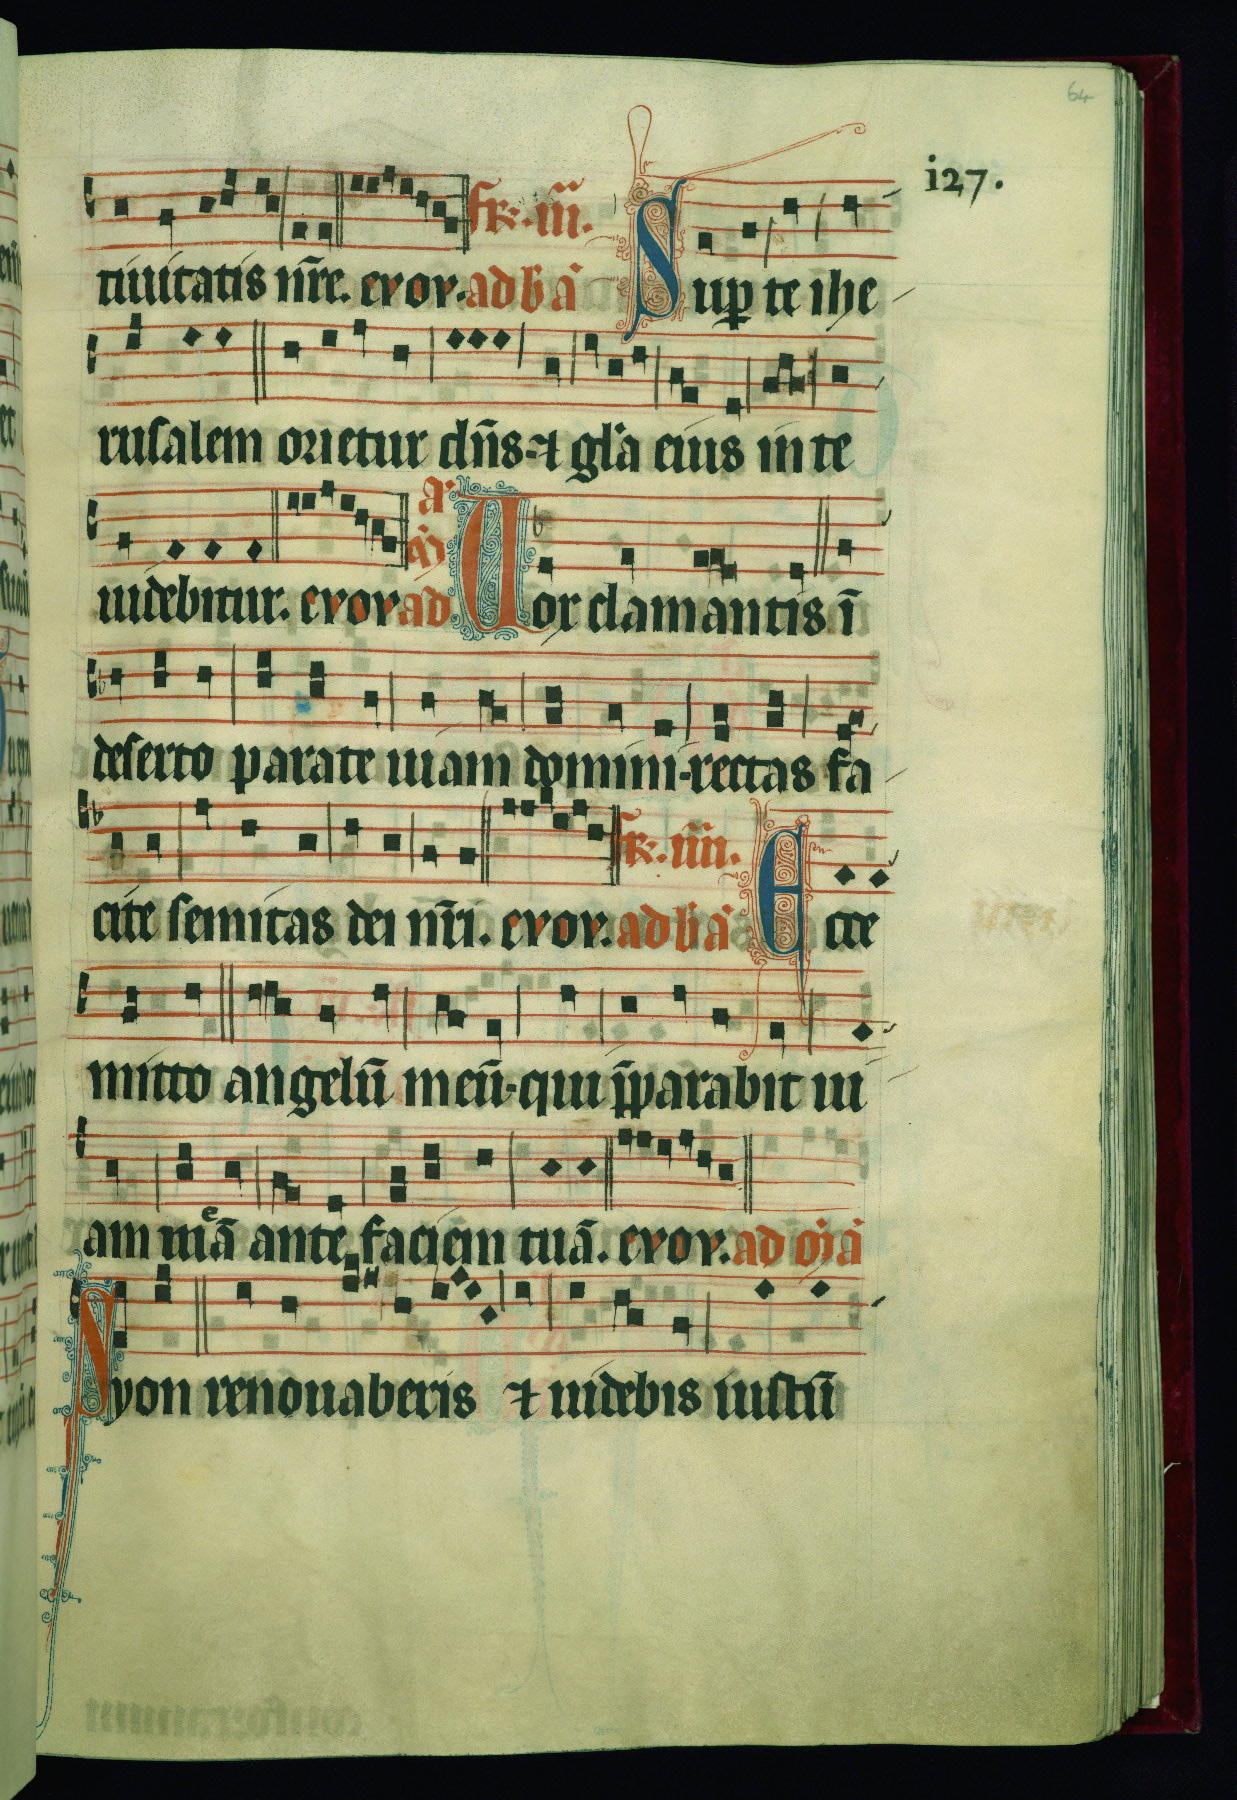 64
i27.
tiuitatis nr̄e. evov. fr̄. iij. ad b̄ a͛ Sup̱ te ihe
rusalem orietur dn̄s· ⁊ gl̓a eius in te
uidebitur. evov ad m̄ a͛ Uox clamantis ī
deserto parate uiam domini· rectas fa
cite semitas dei nr̄i. evov. fr̄. iiij. ad b̄ a͛ Ecce
mitto angelū meū· qui p̄parabit ui
am meā ante faciem tuā. evov. ad m̄ a͛
Syon renouaberis ⁊ uidebis iustū